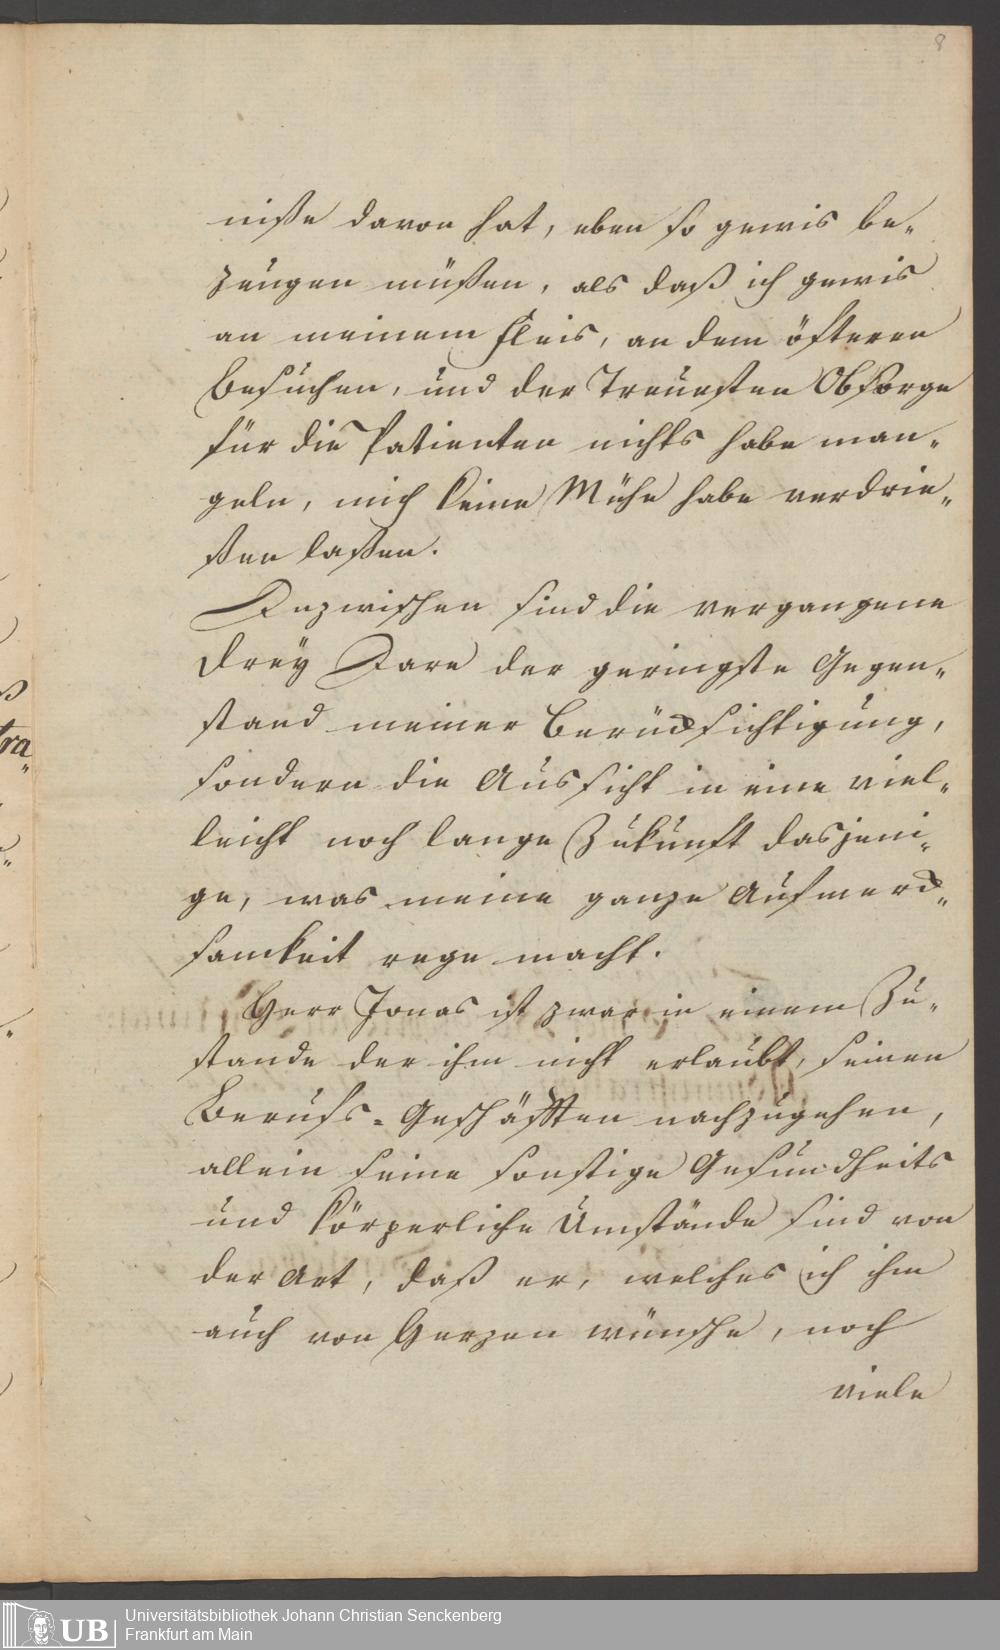 8
niße davon hat, eben so gewis be„
zeugen müßen, als daß ich gewis
an meinem Fleis, an dem öfteren
Besuchen, und der Treuesten Obsorge
für die Patienten nichts habe man„
geln, mich keine Mühe habe verdrie„
ßen laßen.
Inzwischen sind die vergangene
drey Jare der geringste Gegen„
stand meiner Berücksichtigung,
sondern die Aussicht in eine viel„
leicht noch lange Zukunft dasjeni„
ge, was meine ganze Aufmerck„
samkeit rege macht.
Herr Jonas ist zwar in einem Zu„
stande der ihm nicht erlaubt, seinen
Berufs-Geschäften nachzugehen,
allein seine sonstige Gesundheits
und körperliche Umstände sind von
der Art, daß er, welches ich ihm
auch von Herzen wünsche, noch
viele
ß
tra„
UB
Universitätsbibliothek Johann Christian Senckenberg
Frankfurt am Main